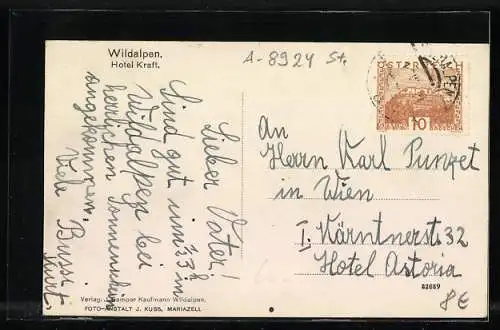 Wildalpen.
Hotel Kraft.
A-8924 St.
ÖSTERREICH
10
Lieber Vater!
Sind gut um ½3 h in
Wildalpen bei
herrlichem Sonnenschein
angekommen.
Viele Bussi
Kurt.
An
Herrn Karl Punzet
in Wien
I. Kärntnerstr. 32
Hotel Astoria
82689
8€
Verlag: J. Gamper Kaufmann Wildalpen.
FOTO-ANSTALT J. KUSS, MARIAZELL